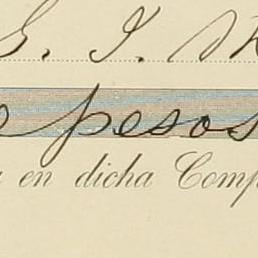 G. J.
pesos
en dicha Comp